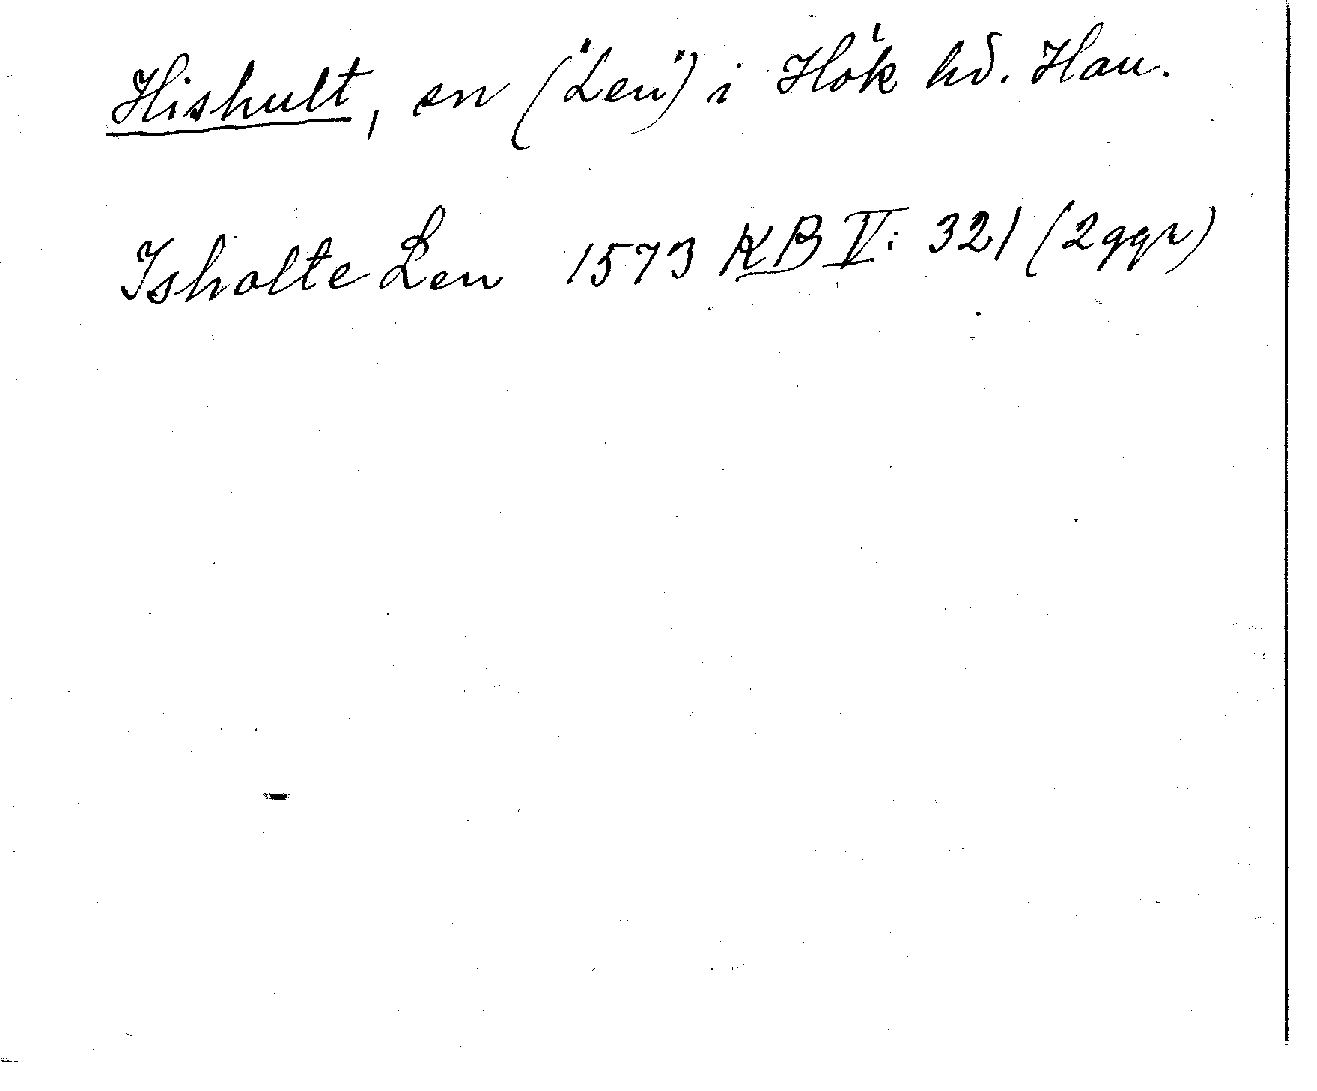 Hishult, sn ("Len") i Hök hd. Hall.
Isholte Len 1573 KB V: 321 (2 ggr)